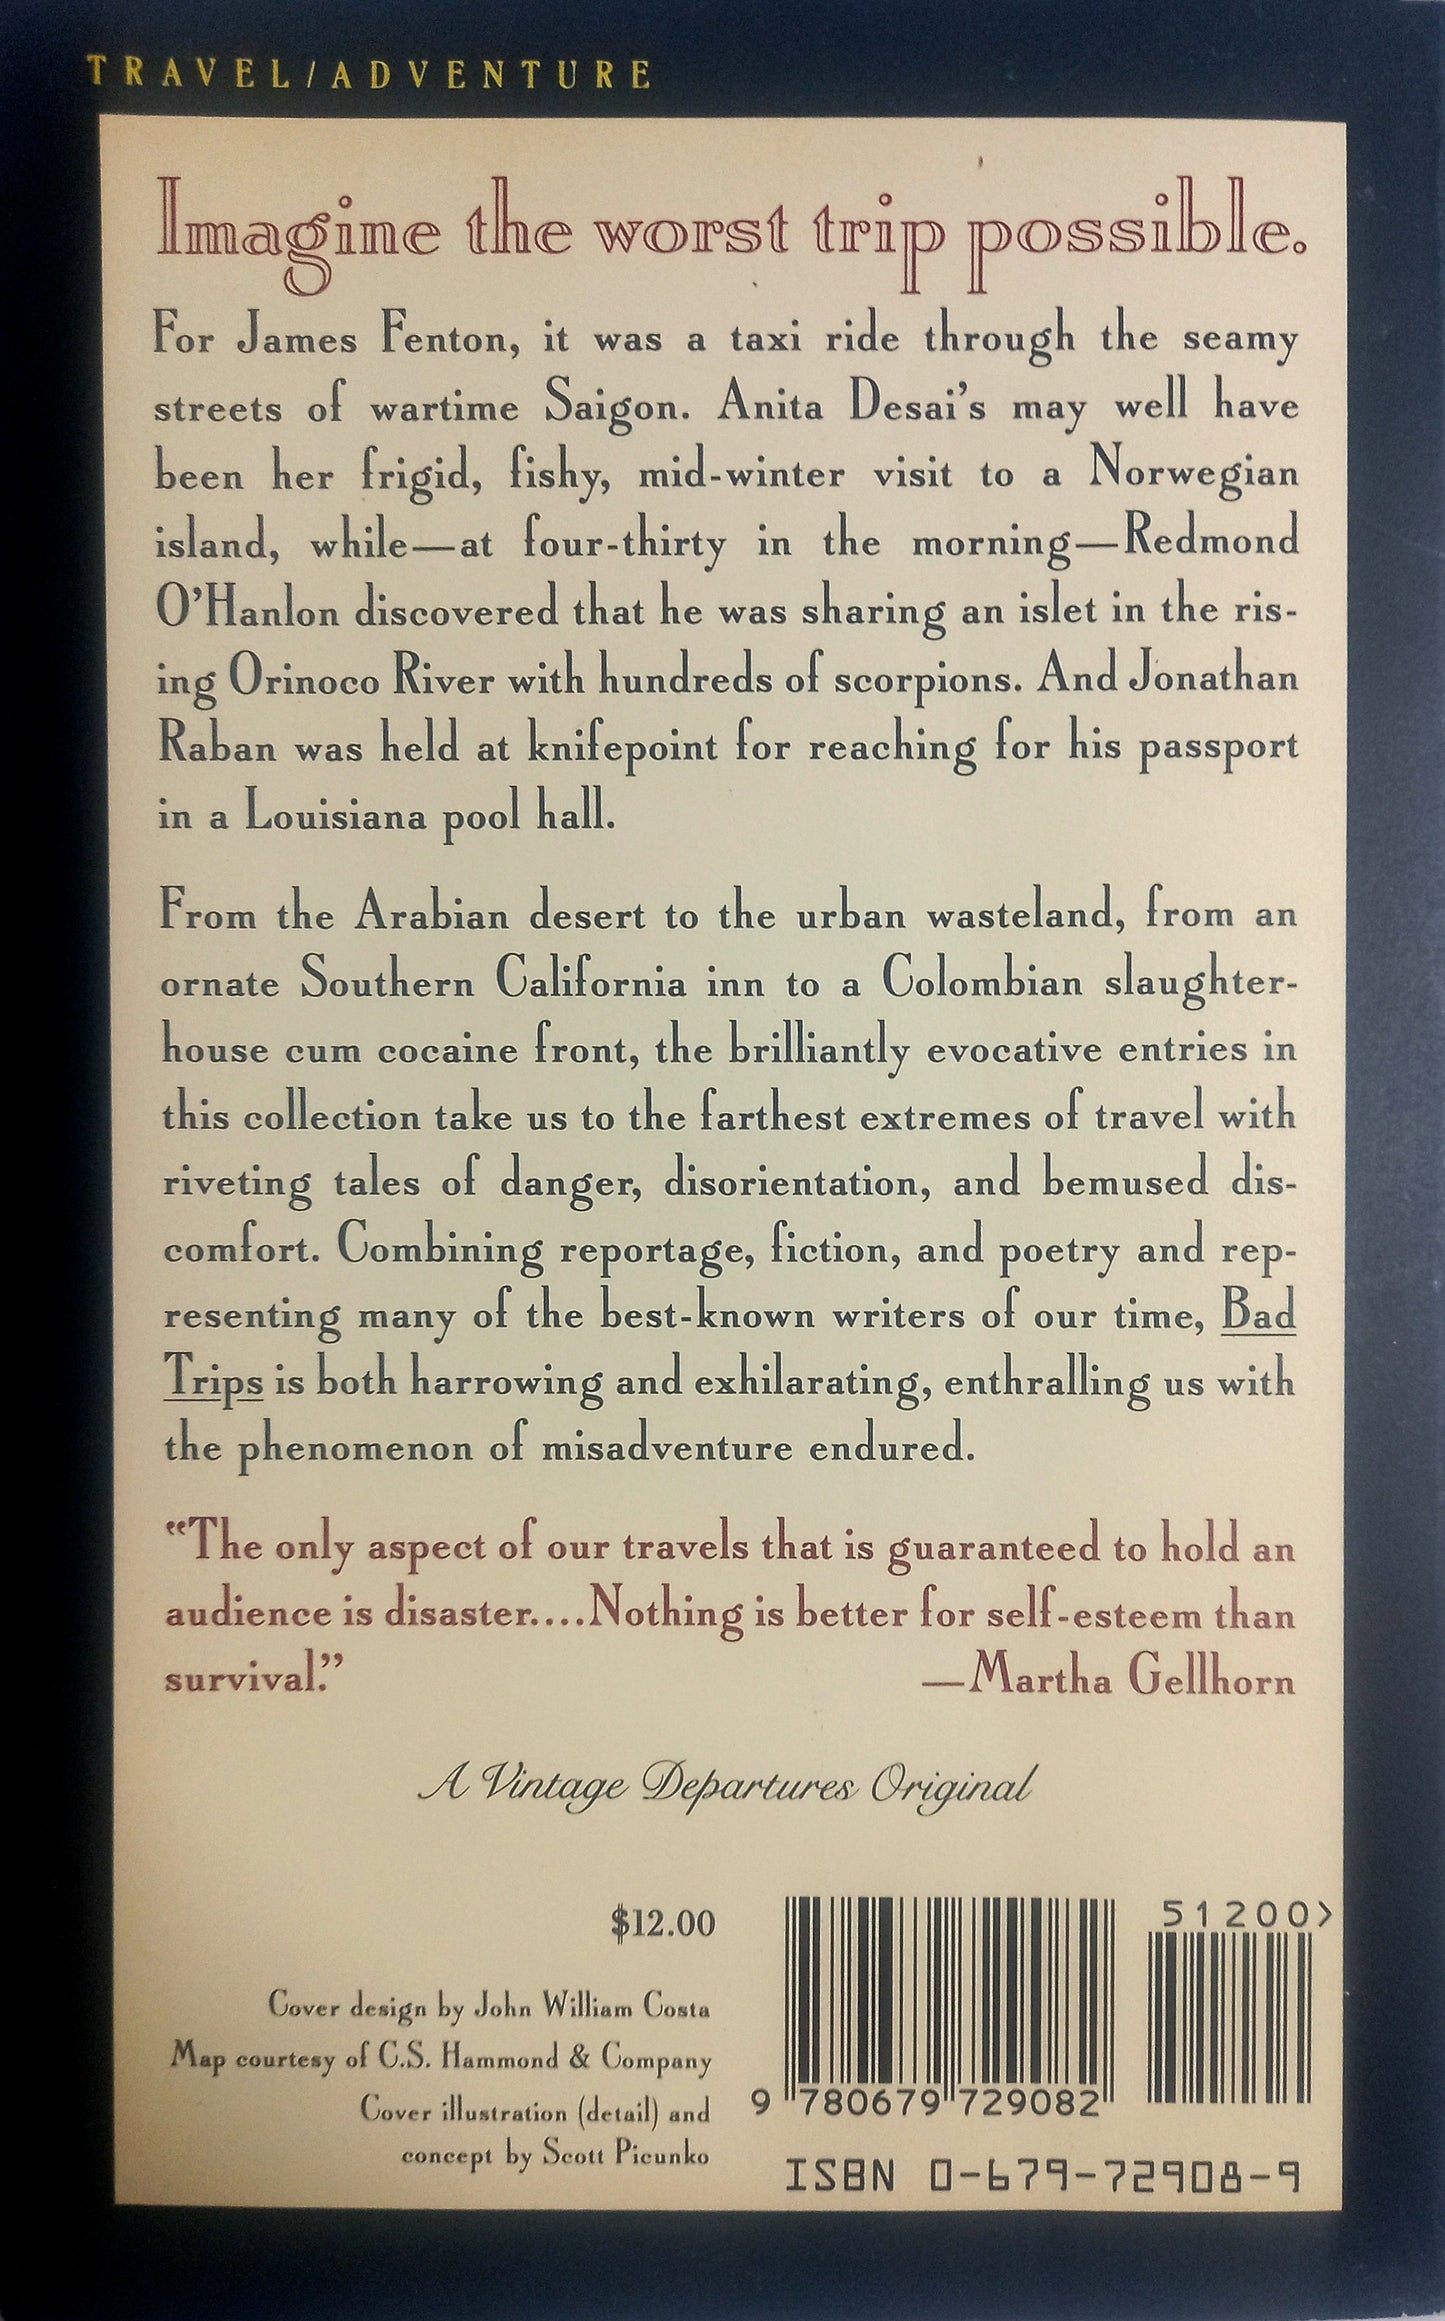 TRAVEL/ADVENTURE
Imagine the worst trip possible.
For James Fenton, it was a taxi ride through the seamy
streets of wartime Saigon. Anita Desai's may well have
been her frigid, fishy, mid-winter visit to a Norwegian
island, while—at four-thirty in the morning—Redmond
O'Hanlon discovered that he was sharing an islet in the ris-
ing Orinoco River with hundreds of scorpions. And Jonathan
Raban was held at knifepoint for reaching for his passport
in a Louisiana pool hall.
From the Arabian desert to the urban wasteland, from an
ornate Southern California inn to a Colombian slaughter-
house cum cocaine front, the brilliantly evocative entries in
this collection take us to the farthest extremes of travel with
riveting tales of danger, disorientation, and bemused dis-
comfort. Combining reportage, fiction, and poetry and rep-
resenting many of the best-known writers of our time, Bad
Trips is both harrowing and exhilarating, enthralling us with
the phenomenon of misadventure endured.
"The only aspect of our travels that is guaranteed to hold an
audience is disaster....Nothing is better for self-esteem than
survival." —Martha Gellhorn
A Vintage Departures Original
$12.00
Cover design by John William Costa
Map courtesy of C.S. Hammond & Company
Cover illustration (detail) and
concept by Scott Picunko
51200>
9 780679 729082
ISBN 0-679-72908-9